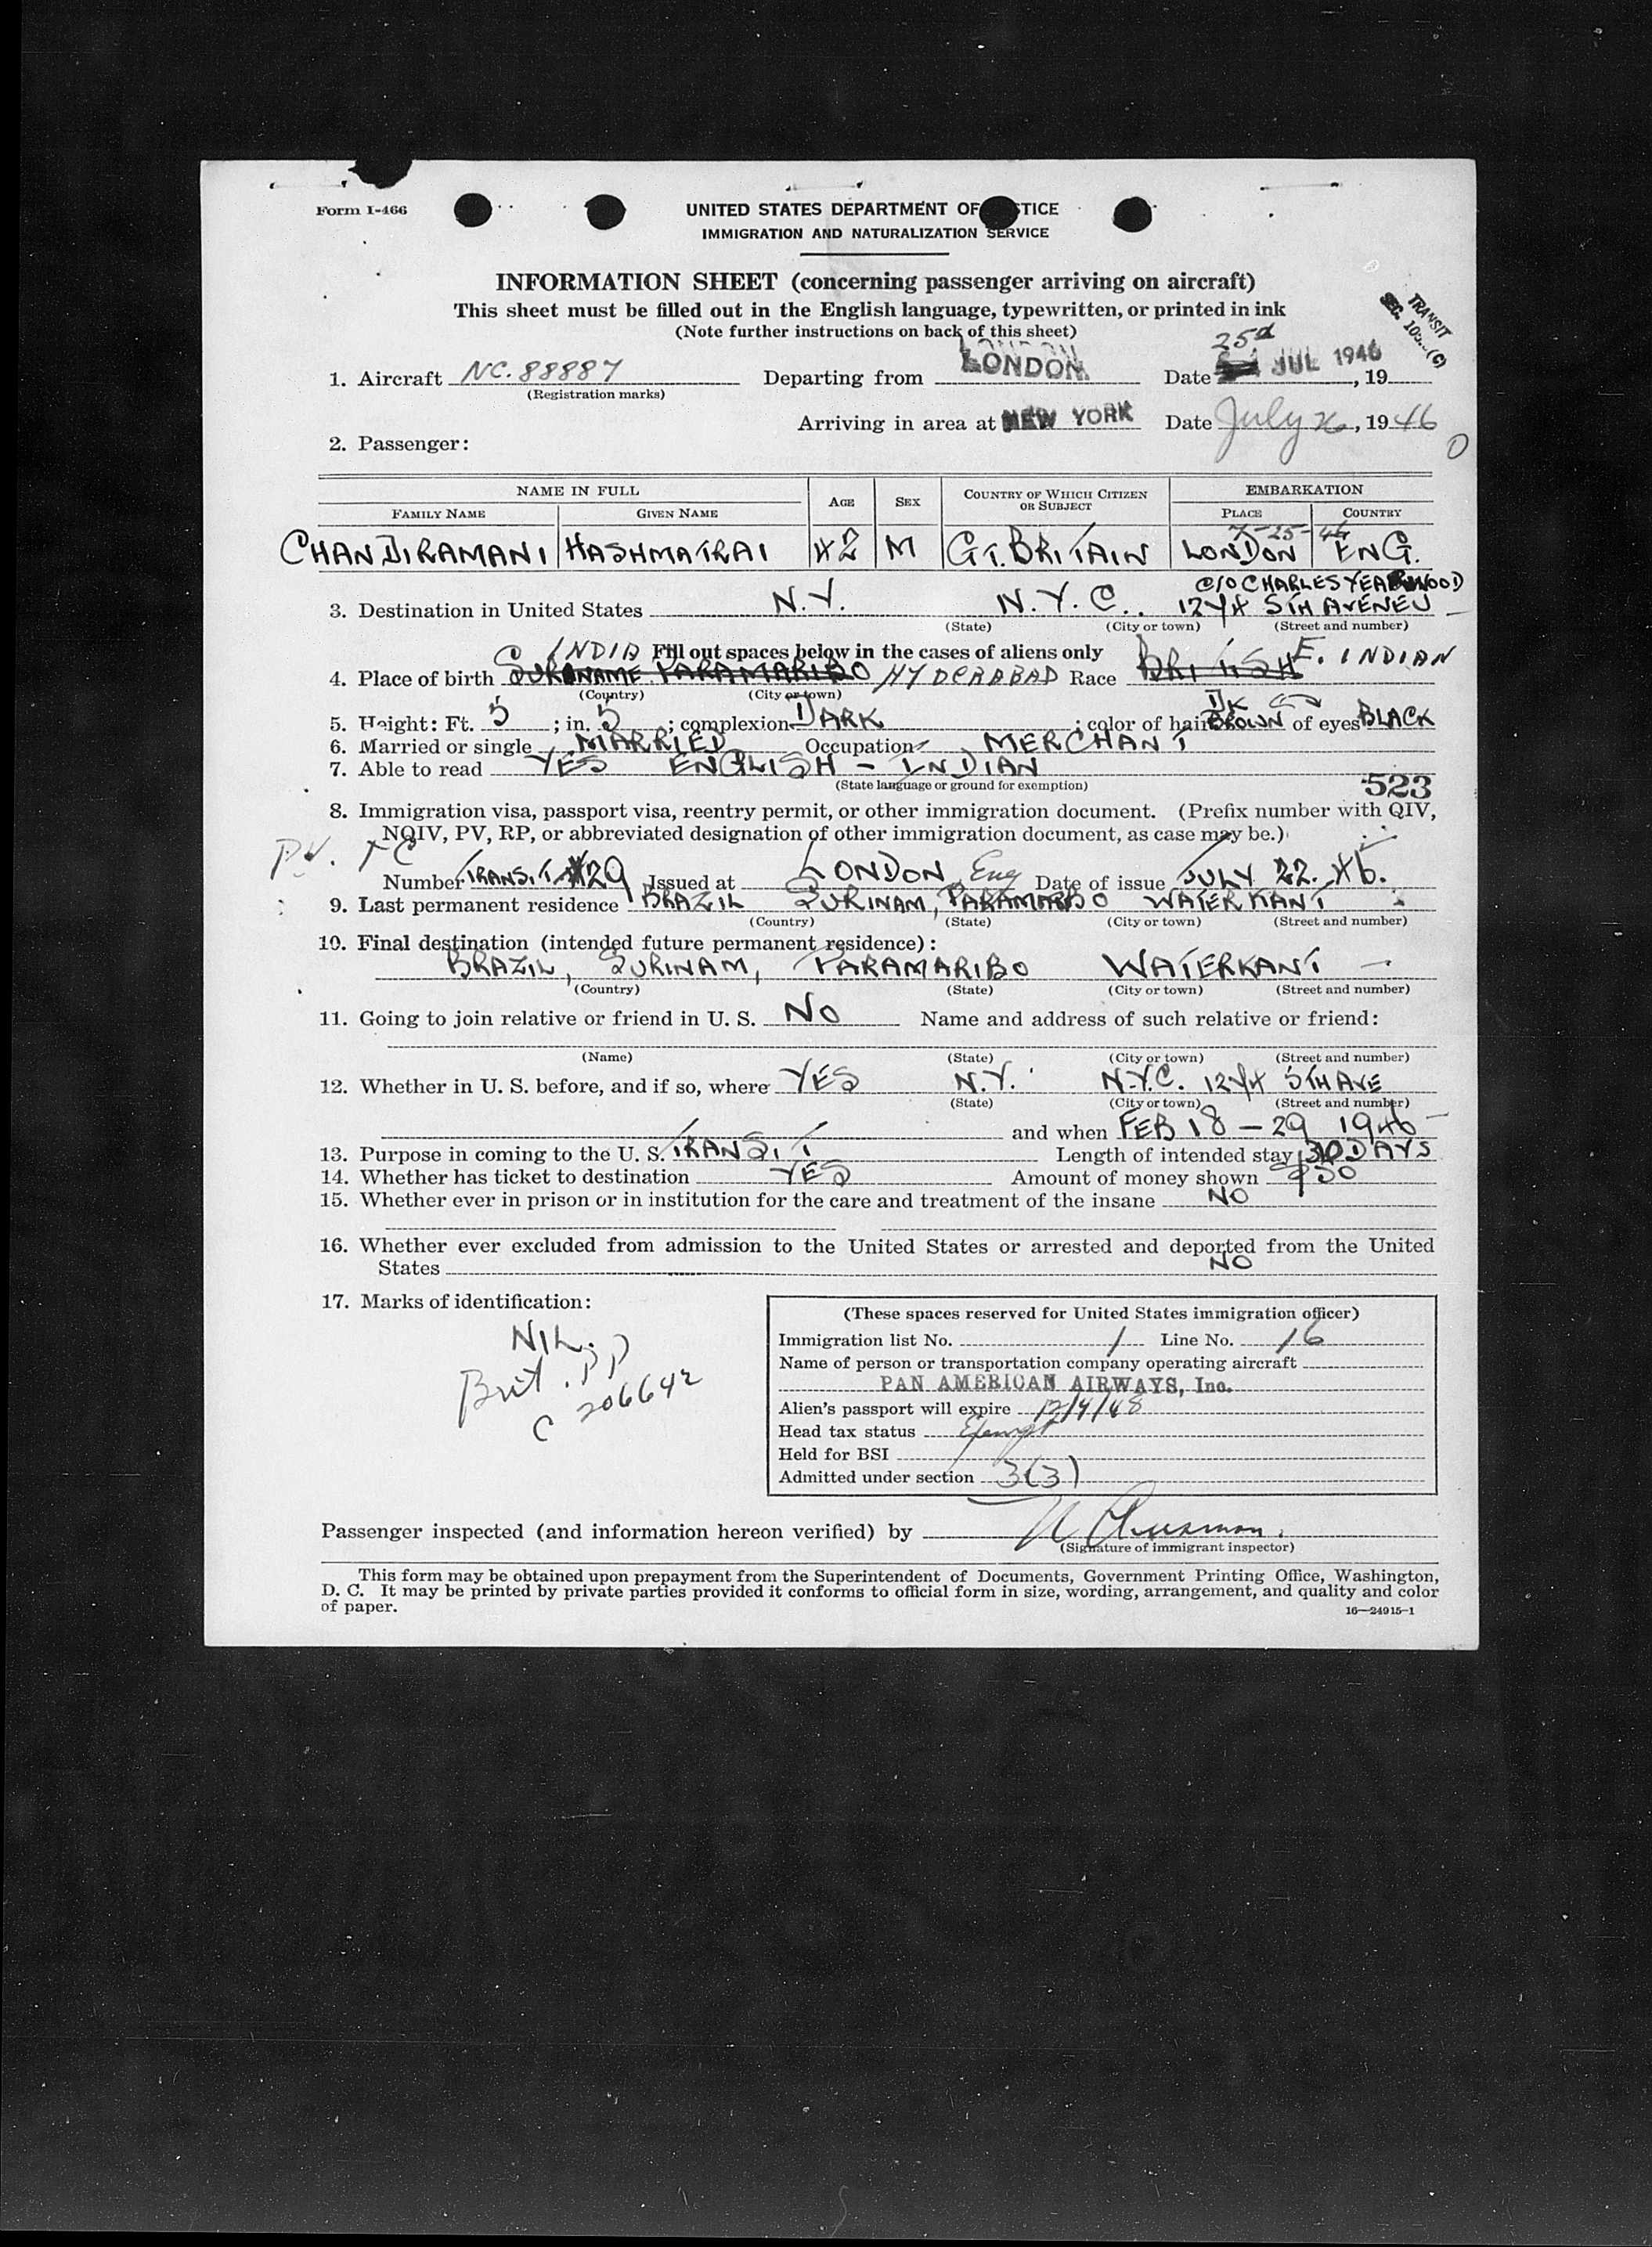 Form I-466
UNITED STATES DEPARTMENT OF TICE
IMMIGRATION AND NATURALIZATION SERVICE
INFORMATION SHEET (concerning passenger arriving on aircraft)
This sheet must be filled out in the English language, typewritten, or printed in ink
(Note further instructions on back of this sheet)
TRANSIT
1. Aircraft NC. 88887 Departing from LONDON Date 25th JUL 1946, 19
(Registration marks)
Arriving in area at NEW YORK Date July 26, 1946
2. Passenger:
NAME IN FULL AGE SEX COUNTRY OF WHICH CITIZEN OR SUBJECT EMBARKATION
FAMILY NAME GIVEN NAME PLACE COUNTRY
7-25-46
CHANDIRAMANI HASHMATRAI 42 M GT. BRITAIN LONDON ENG.
C/O CHARLES YEARWOOD
3. Destination in United States N.Y. N.Y.C. 1244 5TH AVENEU
(State) (City or town) (Street and number)
INDIA Fill out spaces below in the cases of aliens only
4. Place of birth SURINAME PARAMARIBO HYDERABAD Race BRITISH E. INDIAN
(Country) (City or town)
5. Height: Ft. 5; in. 5; complexion DARK; color of hair DK BROWN of eyes BLACK
6. Married or single MARRIED Occupation MERCHANT
7. Able to read YES ENGLISH - INDIAN
(State language or ground for exemption)
523
8. Immigration visa, passport visa, reentry permit, or other immigration document. (Prefix number with QIV,
NQIV, PV, RP, or abbreviated designation of other immigration document, as case may be.)
PV.
Number TRANSIT #29 Issued at LONDON, Eng Date of issue JULY 22. 46.
9. Last permanent residence BRAZIL SURINAM, PARAMARIBO WATERKANT
(Country) (State) (City or town) (Street and number)
10. Final destination (intended future permanent residence):
BRAZIL, SURINAM, PARAMARIBO WATERKANT -
(Country) (State) (City or town) (Street and number)
11. Going to join relative or friend in U. S. NO Name and address of such relative or friend:
(Name) (State) (City or town) (Street and number)
12. Whether in U. S. before, and if so, where YES N.Y. N.Y.C. 1244 5TH AVE
(State) (City or town) (Street and number)
and when FEB 18 - 29 1946
13. Purpose in coming to the U. S. TRANSIT Length of intended stay 30 DAYS
14. Whether has ticket to destination YES Amount of money shown $50
15. Whether ever in prison or in institution for the care and treatment of the insane NO
16. Whether ever excluded from admission to the United States or arrested and deported from the United
States NO
17. Marks of identification:
NIL.
Brit. PP
C 206642
(These spaces reserved for United States immigration officer)
Immigration list No. 1 Line No. 16
Name of person or transportation company operating aircraft
PAN AMERICAN AIRWAYS, Inc.
Alien's passport will expire 12/4/48
Head tax status Exempt
Held for BSI
Admitted under section 3(3)
Passenger inspected (and information hereon verified) by
(Signature of immigrant inspector)
This form may be obtained upon prepayment from the Superintendent of Documents, Government Printing Office, Washington,
D. C. It may be printed by private parties provided it conforms to official form in size, wording, arrangement, and quality and color
of paper.
16—24915-1